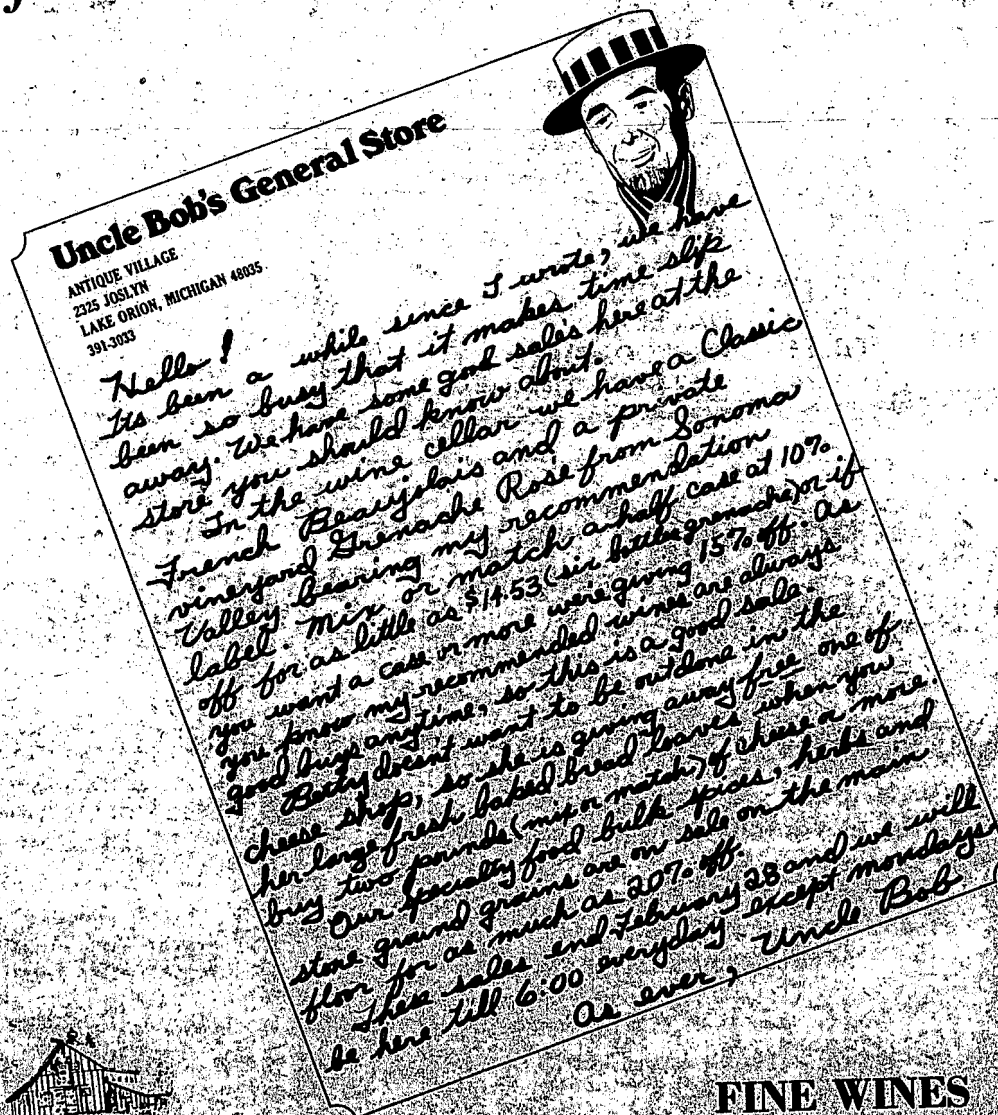 Uncle Bob's General Store
ANTIQUE VILLAGE
2325 JOSLYN
LAKE ORION, MICHIGAN 48035
391-3033
Hello!
Its been a while since I wrote, we have
been so busy that it makes time slip
away. We have some good sales here at the
store you should know about.
In the wine cellar we have a Classic
French Beaujolais and a private
vineyard Grenache Rose from Sonoma
Valley bearing my recommendation
label. Mix or match a half case at 10%
off for as little as $14.53 (six bottles grenache) or if
you want a case or more were giving 15% off. As
you know my recommended wines are always
good buys anytime, so this is a good sale.
Betty doesnt want to be outdone in the
cheese shop, so she is giving away free one of
her large fresh baked bread loaves when you
buy two pounds (mix or match) of cheese or more.
Our specialty food bulk spices, herbs and
stone ground grains are on sale on the main
floor for as much as 20% off.
These sales end February 28 and we will
be here till 6:00 everyday except mondays
As ever, Uncle Bob
FINE WINES